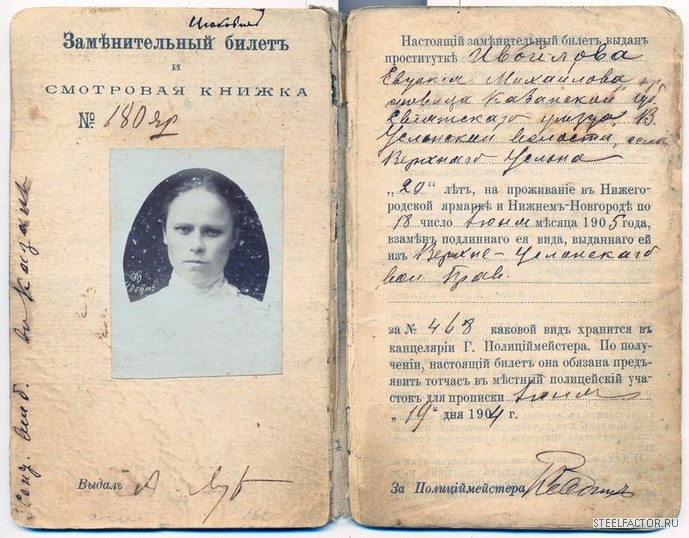 Замѣнительный билетъ
и
СМОТРОВАЯ КНИЖКА
№ 180 яр
180
Выдалъ
Настоящій замѣнительный билетъ выданъ
проституткѣ Ивойлова
Евдокія Михайлова
Казанской губ.
Свіяжскаго уѣзда, В.
Услонской волости, села
Верхняго Услона
„20“ лѣтъ, на проживаніе въ Нижего-
родской ярмаркѣ и Нижнемъ-Новгородѣ по
18 число Іюня мѣсяца 1905 года,
взамѣнъ подлиннаго ея вида, выданнаго ей
изъ Верхне-Услонскаго
вол. Прав.
за № 468 каковой видъ хранится въ
канцеляріи Г. Полиціймейстера. По полу-
ченіи, настоящій билетъ она обязана предъ-
явить тотчасъ въ мѣстный полицейскій уча-
стокъ для прописки Іюня
„19“ дня 1904 г.
За Полиціймейстера
STEELFACTOR.RU